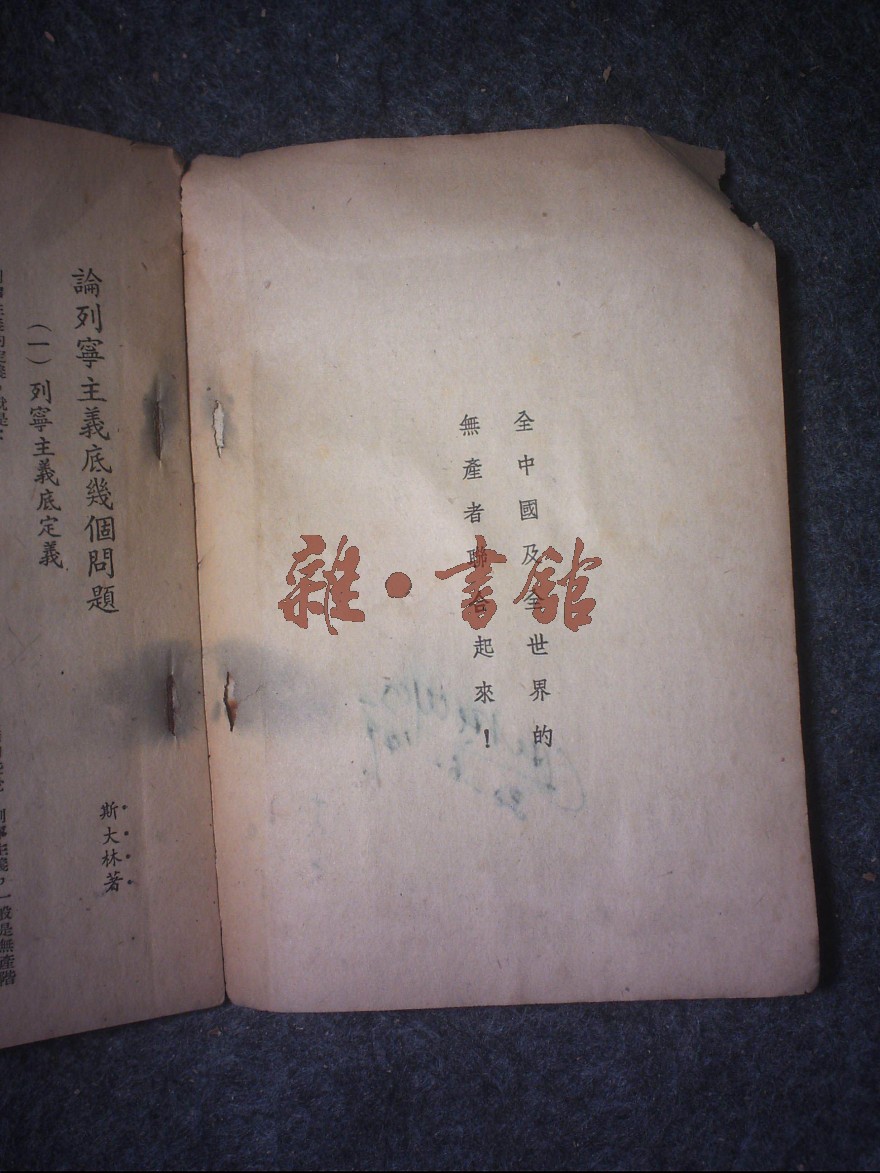 全中國及全世界的
無產者聯合起來！
雜•書館
論列寧主義底幾個問題
斯大林著
（一）列寧主義底定義